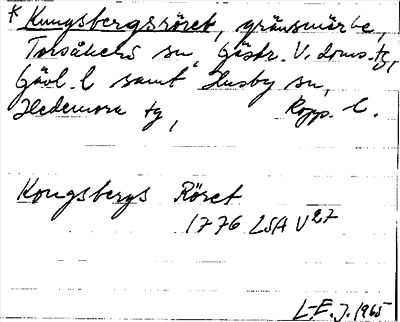 * Kungsbergsröret, gränsmärke,
Torsåkers sn, Gästr. V. doms. tg,
Gävl. l samt Husby sn,
Hedemora tg, Kopp. l.
Kongsbergs Röret
1776 LSA U27
L-E. J. 1965